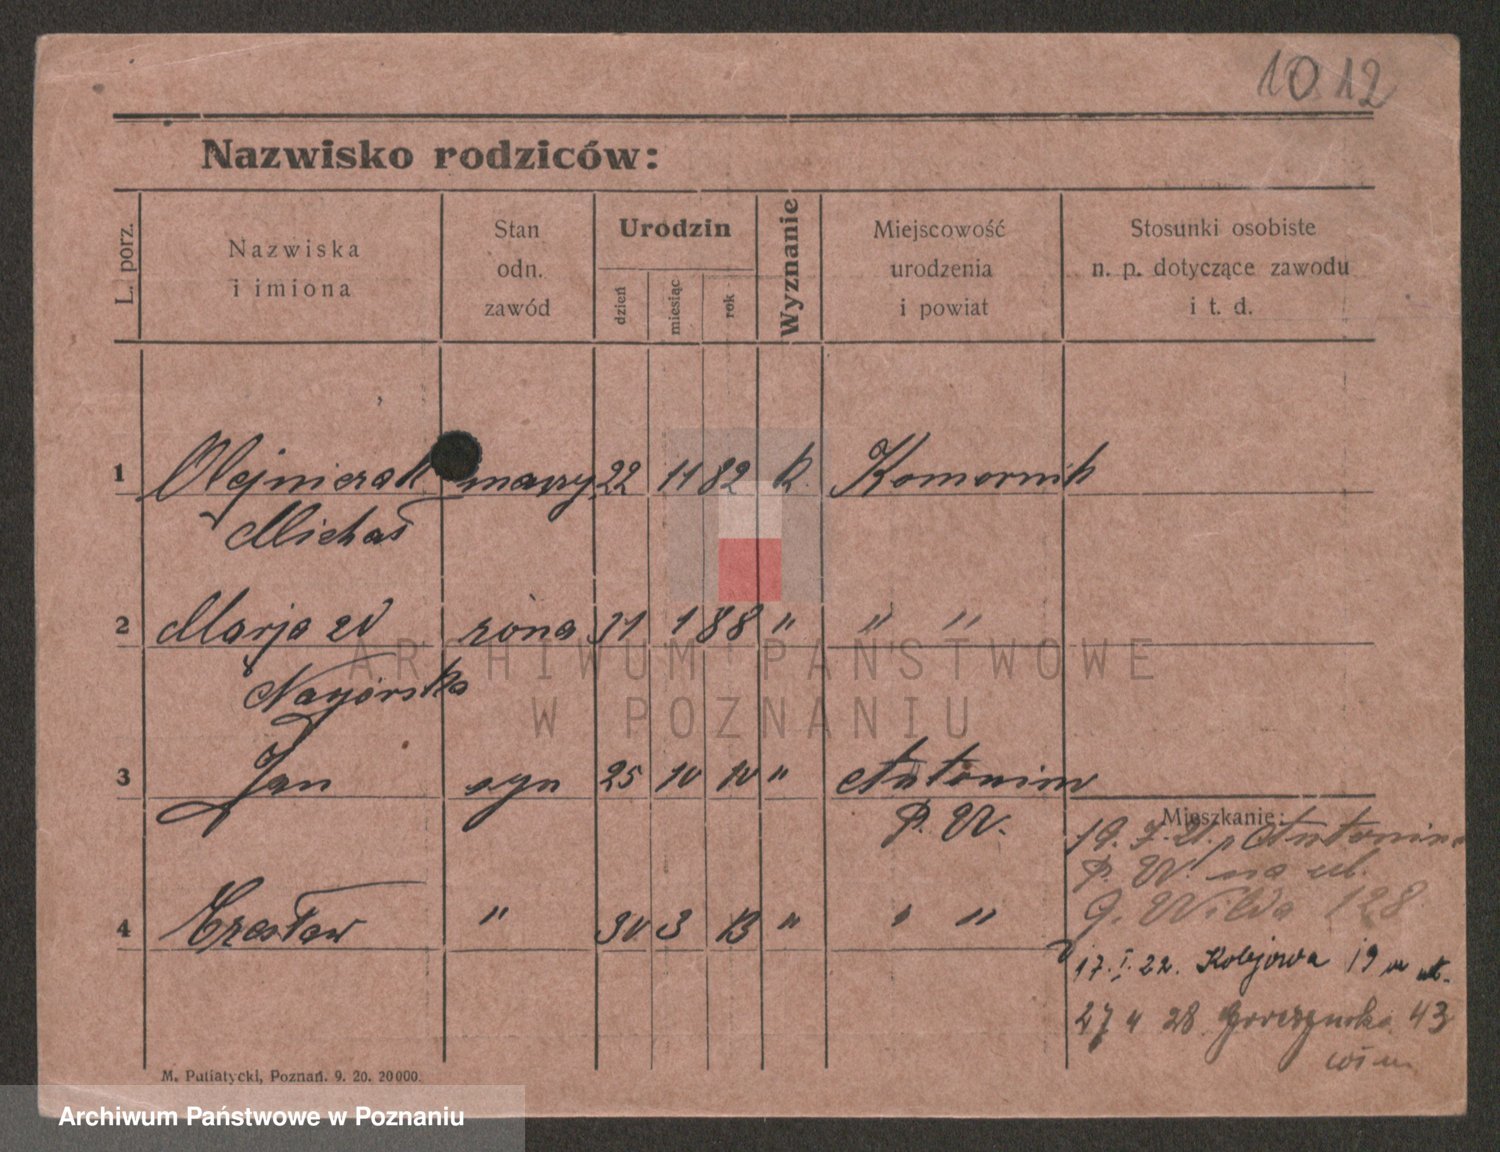 1012
Nazwisko rodziców:
L. porz.
Nazwiska
i imiona
Stan
odn.
zawód
Urodzin
dzień
miesiąc
rok
Wyznanie
Miejscowość
urodzenia
i powiat
Stosunki osobiste
n. p. dotyczące zawodu
i t. d.
1 Olejniczak murzy 22 11 82 k. Komornik
Michał
2 Marja zd żona 31 1 88 " " "
Nagórska
3 Jan syn 25 10 10 " Antonin
P. W.
Mieszkanie:
19. 7. 21. p Antonin
P. W. na ul.
G. Wilda 128
4 Czesław " 30 3 13 " " "
17. I. 22. Kolejowa 19
27 4 28 Górczyńska 43
M. Putiatycki, Poznań. 9. 20. 20000.
ARCHIWUM PAŃSTWOWE
W POZNANIU
Archiwum Państwowe w Poznaniu